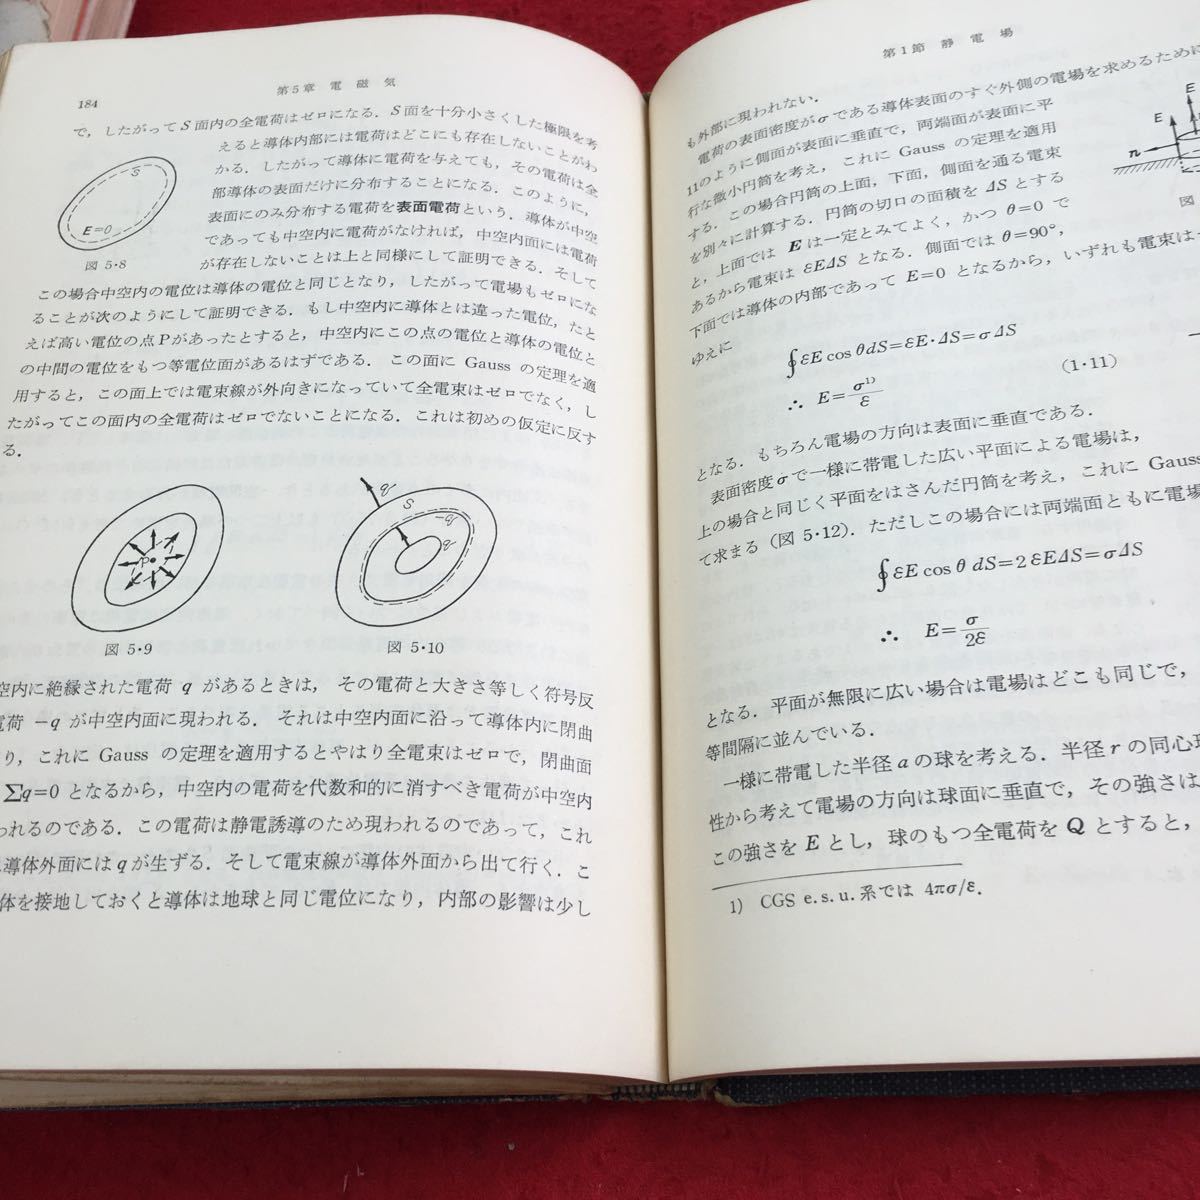 184
第5章 電 磁 気
で，したがってS面内の全電荷はゼロになる．S面を十分小さくした極限を考
えると導体内部には電荷はどこにも存在しないことがわ
かる．したがって導体に電荷を与えても，その電荷は全
部導体の表面だけに分布することになる．このように，
表面にのみ分布する電荷を表面電荷という．導体が中空
であっても中空内に電荷がなければ，中空内面には電荷
が存在しないことは上と同様にして証明できる．そして
S
E=0
図 5・8
この場合中空内の電位は導体の電位と同じとなり，したがって電場もゼロにな
ることが次のようにして証明できる．もし中空内に導体とは違った電位，たと
えば高い電位の点Pがあったとすると，中空内にこの点の電位と導体の電位と
の中間の電位をもつ等電位面があるはずである．この面に Gauss の定理を適
用すると，この面上では電束線が外向きになっていて全電束はゼロでなく，し
たがってこの面内の全電荷はゼロでないことになる．これは初めの仮定に反す
る．
P
図 5・9
q
S
-q
q
図 5・10
空内に絶縁された電荷 q があるときは，その電荷と大きさ等しく符号反
電荷 −q が中空内面に現われる．それは中空内面に沿って導体内に閉曲
り，これに Gauss の定理を適用するとやはり全電束はゼロで，閉曲面
Σq=0 となるから，中空内の電荷を代数和的に消すべき電荷が中空内
われるのである．この電荷は静電誘導のため現われるのであって，これ
導体外面にはqが生ずる．そして電束線が導体外面から出て行く．こ
体を接地しておくと導体は地球と同じ電位になり，内部の影響は少し
第1節 静 電 場
も外部に現われない．
電荷の表面密度がσである導体表面のすぐ外側の電場を求めるために
11のように側面が表面に垂直で，両端面が表面に平
行な微小円筒を考え，これに Gauss の定理を適用
する．この場合円筒の上面，下面，側面を通る電束
を別々に計算する．円筒の切口の面積を ΔS とする
と，上面では E は一定とみてよく，かつ θ=0 で
あるから電束は εEΔS となる．側面では θ=90°，
下面では導体の内部であって E=0 となるから，いずれも電束は
ゆえに
E
E
n
図
∮εE cos θdS=εE・ΔS=σΔS
∴ E=σ/ε¹⁾
(1・11)
となる．もちろん電場の方向は表面に垂直である．
表面密度σで一様に帯電した広い平面による電場は，
上の場合と同じく平面をはさんだ円筒を考え，これに Gauss
て求まる（図 5・12）．ただしこの場合には両端面ともに電場
∮εE cos θ dS=2εEΔS=σΔS
∴ E=σ/2ε
となる．平面が無限に広い場合は電場はどこも同じで，
等間隔に並んでいる．
一様に帯電した半径 a の球を考える．半径 r の同心球
性から考えて電場の方向は球面に垂直で，その強さは
この強さを E とし，球のもつ全電荷を Q とすると，
1) CGS e.s.u.系では 4πσ/ε．